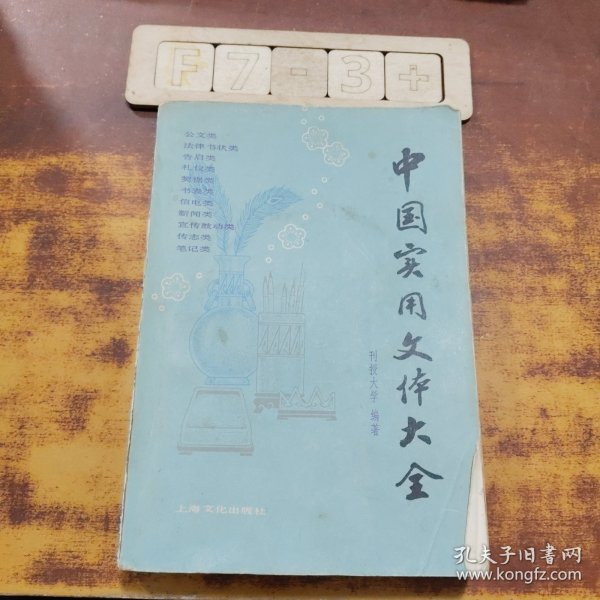 F7-3+
公文类
法律书状类
告启类
礼仪类
契据类
书表类
信电类
新闻类
宣传鼓动类
传志类
笔记类
中国实用文体大全
刊授大学 编著
上海文化出版社
孔夫子旧书网
www.kongfz.com